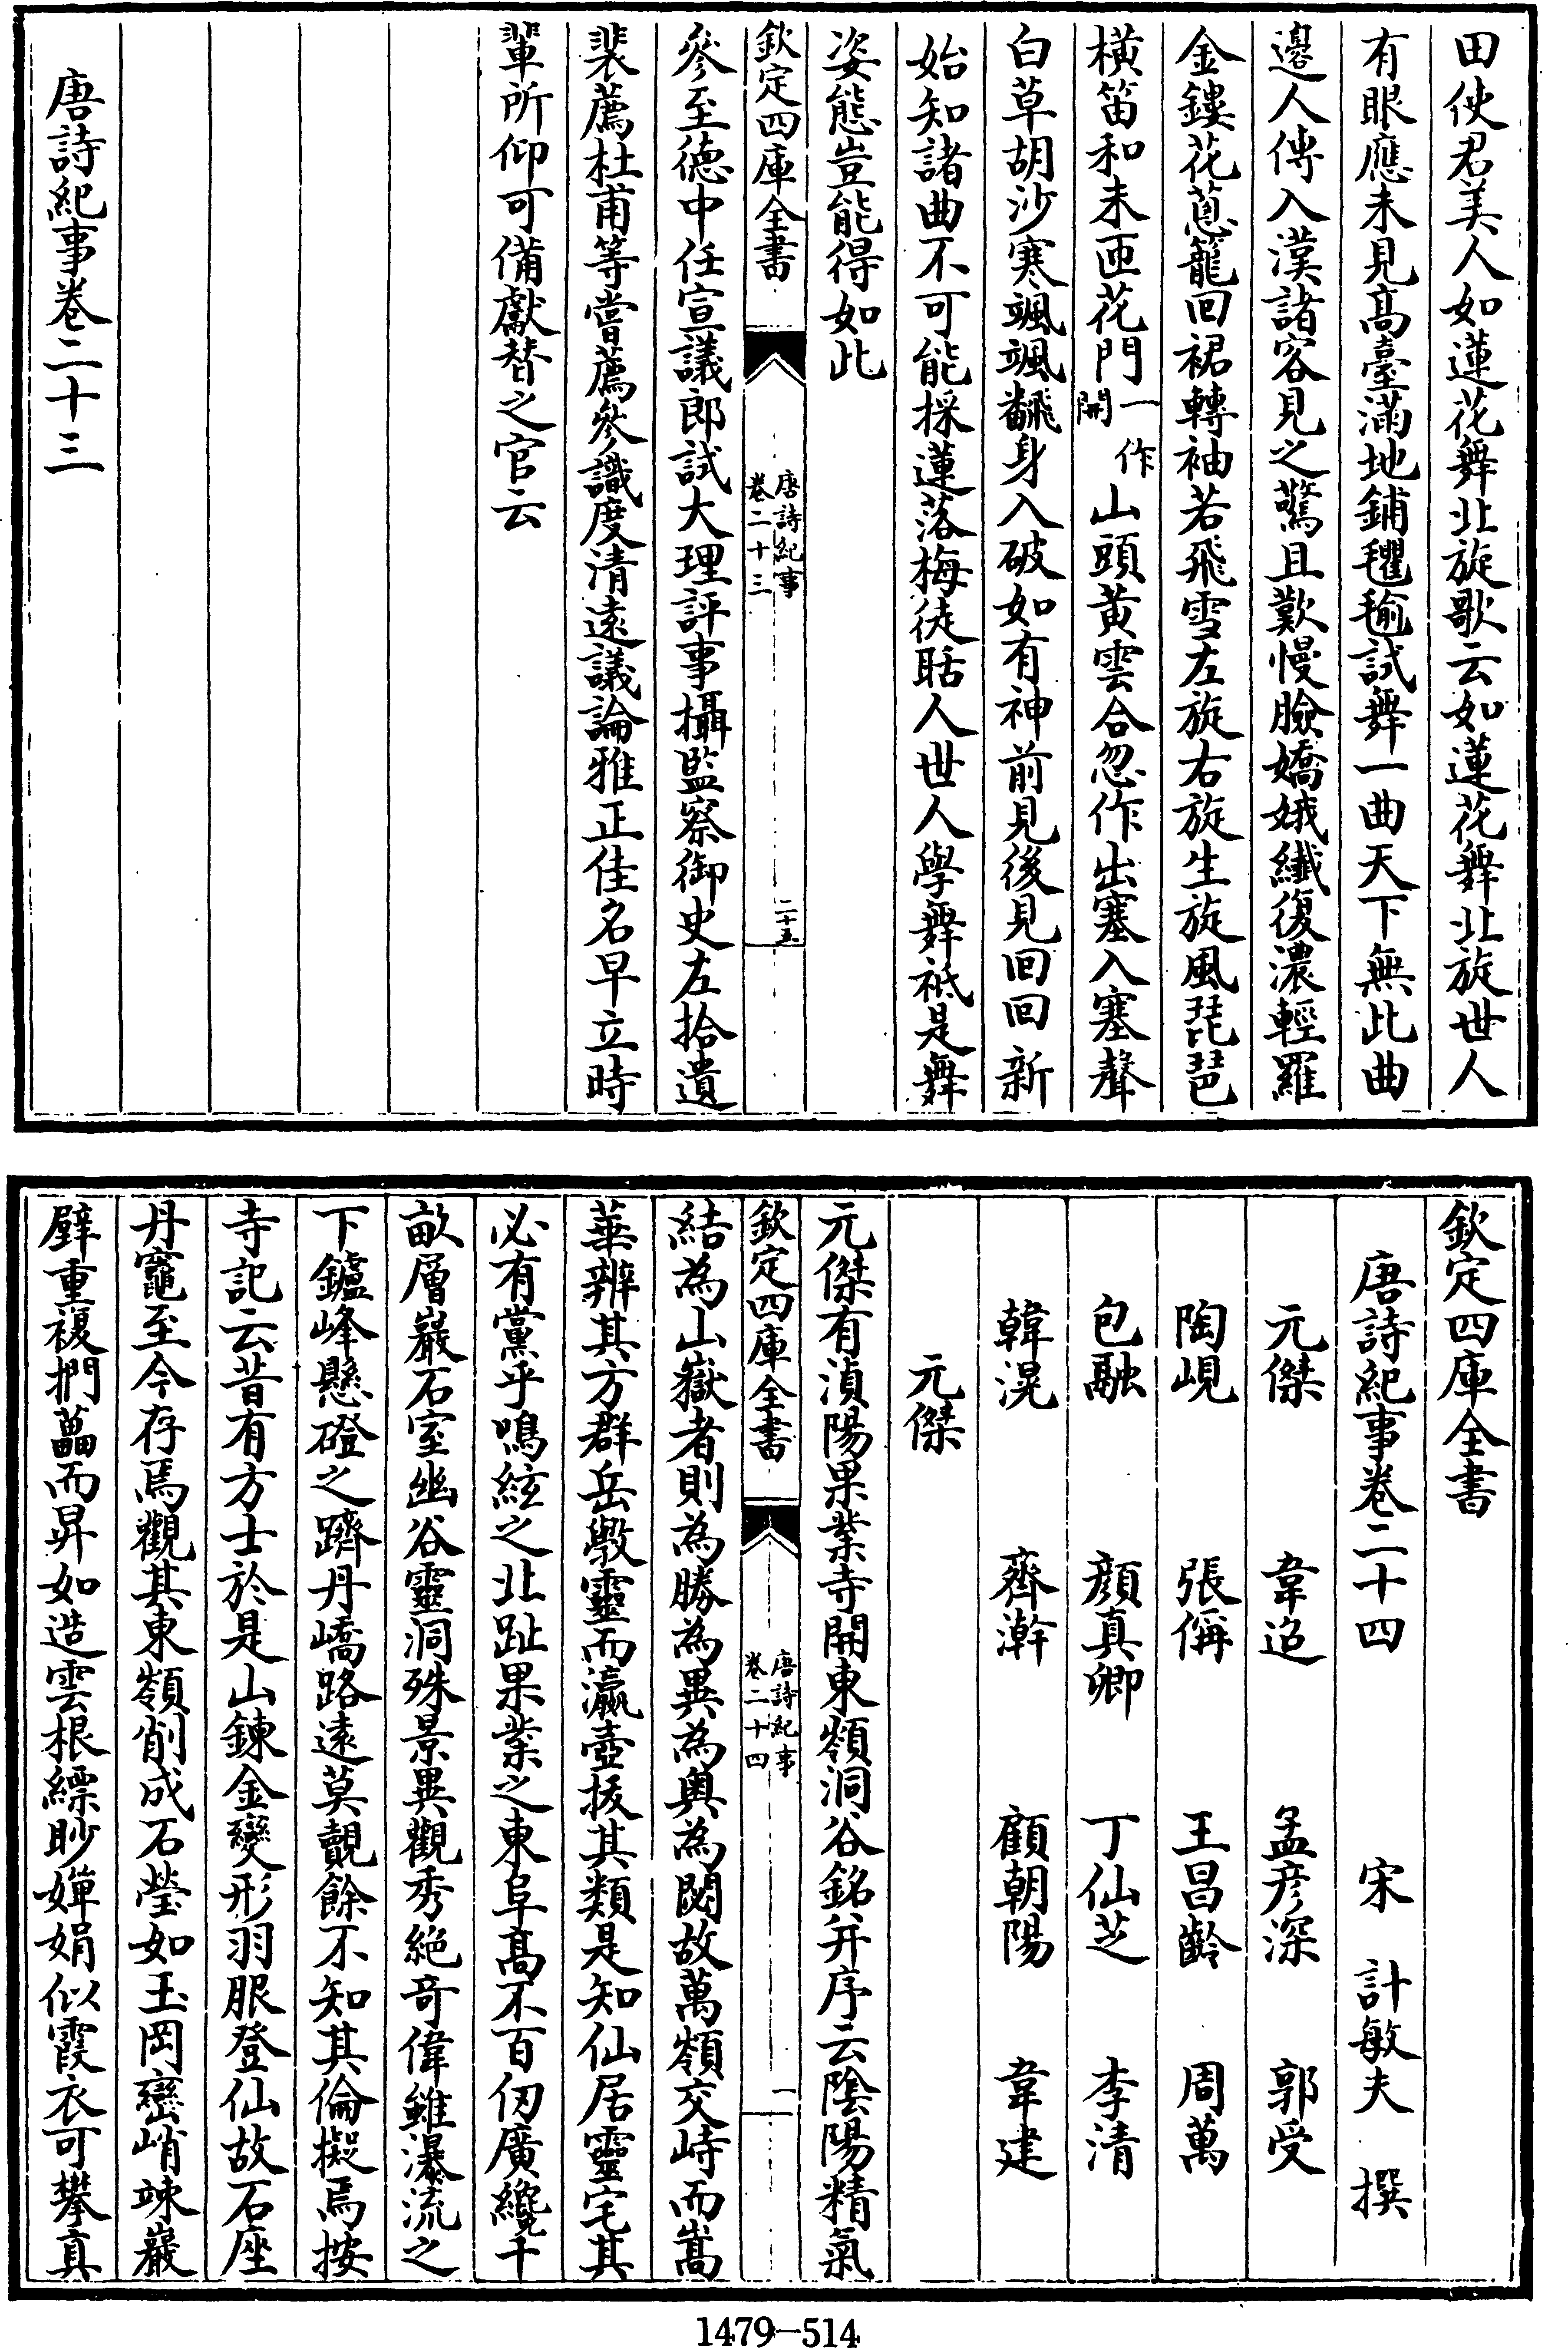 田使君美人如蓮花舞北旋歌云如蓮花舞北旋世人
有眼應未見髙臺滿地鋪氍毹試舞一曲天下無此曲
邊人傳入漢諸客見之驚且歎慢臉嬌娥纎復濃輕羅
金鏤花蔥籠回裾轉袖若飛雪左旋右旋生旋風琵琶
横笛和未匝花門一作開山頭黄雲合忽作出塞入塞聲
白草胡沙寒颯颯飜身入破如有神前見後見回回新
始知諸曲不可能採蓮落梅徒聒人世人學舞祗是舞
姿態豈能得如此
欽定四庫全書
唐詩紀事
卷二十三
二十五
參至德中任宣議郎試大理評事攝監察御史左拾遺
裴薦杜甫等嘗薦參識度清逺議論雅正佳名早立時
輩所仰可備獻替之官云
唐詩紀事卷二十三
欽定四庫全書
唐詩紀事卷二十四 宋 計敏夫 撰
元傑 韋迢 孟彦深 郭受
陶峴 張偁 王昌齡 周萬
包融 顔真卿 丁仙芝 李清
韓滉 齊澣 顧朝陽 韋建
元傑
元傑有湞陽果業寺開東嶺洞谷銘并序云隂陽精氣
欽定四庫全書
唐詩紀事
卷二十四
一
結為山嶽者則為勝為異為奥為閟故萬嶺交峙而嵩
華辨其方群岳㪇靈而瀛壺拔其類是知仙居靈宅其
必有黨乎鳴絃之北趾果業之東阜髙不百仞廣纔千
畝層巖石室幽谷靈洞殊景異觀秀絶竒偉雖瀑流之
下鑪峰懸磴之躋丹嶠路逺莫覿餘不知其倫擬焉按
寺記云昔有方士於是山鍊金變形羽服登仙故石座
丹竈至今存焉觀其東嶺削成石瑩如玉岡巒峭竦巖
壁重複捫藟而昇如造雲根縹眇嬋娟似霞衣可攀真
1479—514